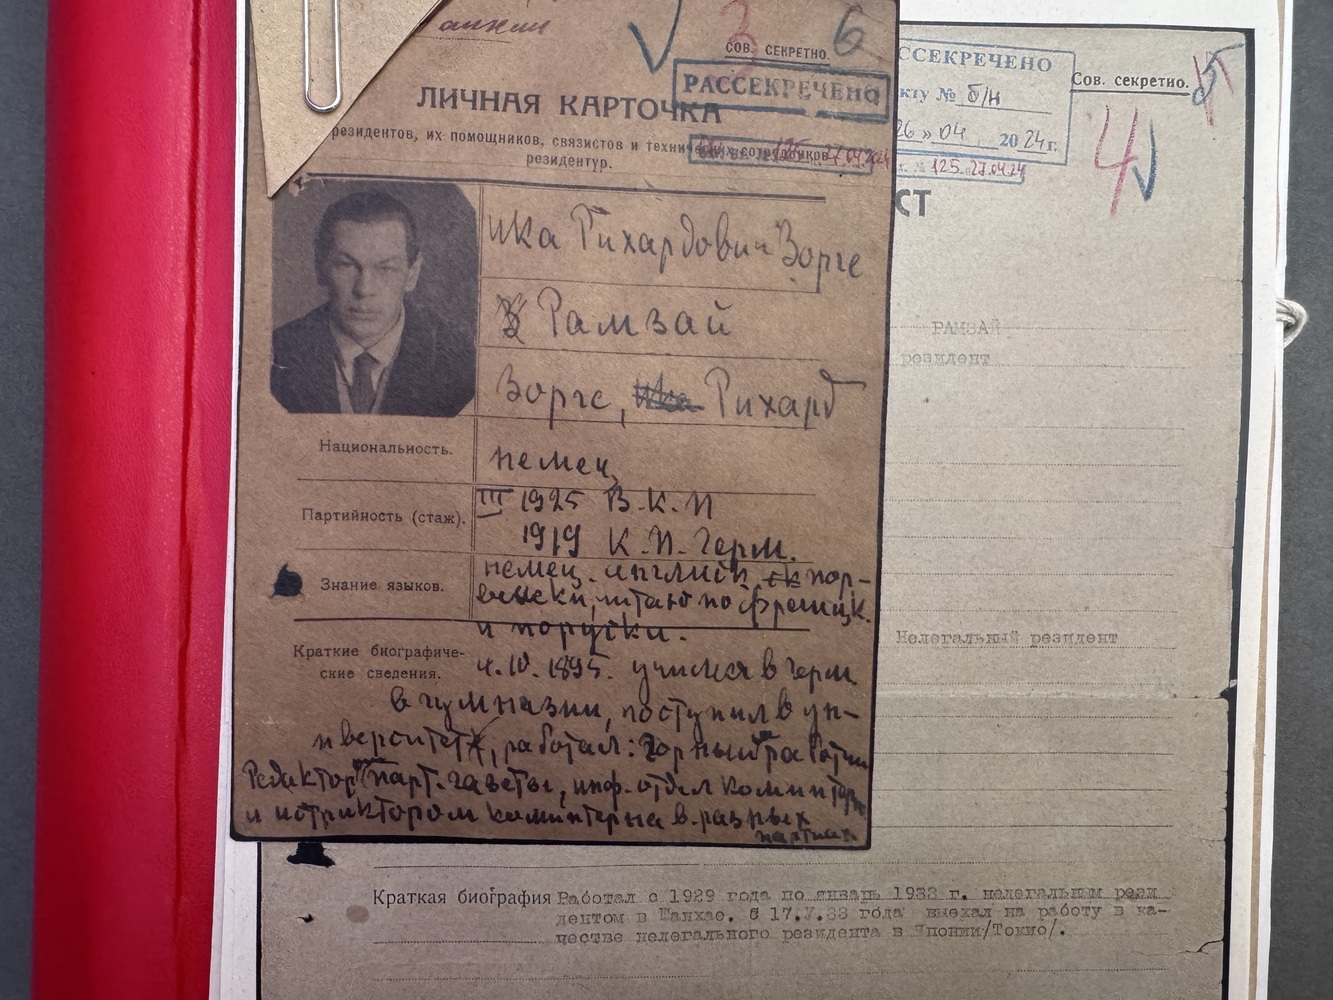 СОВ. СЕКРЕТНО. 6
РАССЕКРЕЧЕНО
ЛИЧНАЯ КАРТОЧКА
резидентов, их помощников, связистов и технических сотрудников
резидентур.
ика Рихардович Зорге
Рамзай
Зорге, ика Рихард
Национальность. немец
Партийность (стаж). III 1925 В.К.П
1919 К.П. Герм.
Знание языков. немец. английск, нор-
вежски, читаю по француск.
и поруски.
Краткие биографиче-
ские сведения. 4. IV. 1895. учился в Герм.
в гумназии, поступил в ун-
иверситет, работал: горный рабочий
Редактор парт. газеты, инф. отдел коминтерн
и истрuктором коминтерна в разных
партиях
ССЕКРЕЧЕНО
кту № б/н
26 » 04 2024 г.
125 27.04.24
Сов. секретно. 5
4
СТ
РАМЗАЙ
резидент
Нелегальный резидент
Краткая биография Работал с 1929 года по январь 1933 г. нелегальным рези
дентом в Шанхае. С 17.V.33 года выехал на работу в ка-
честве нелегального резидента в Японии/Токио/.